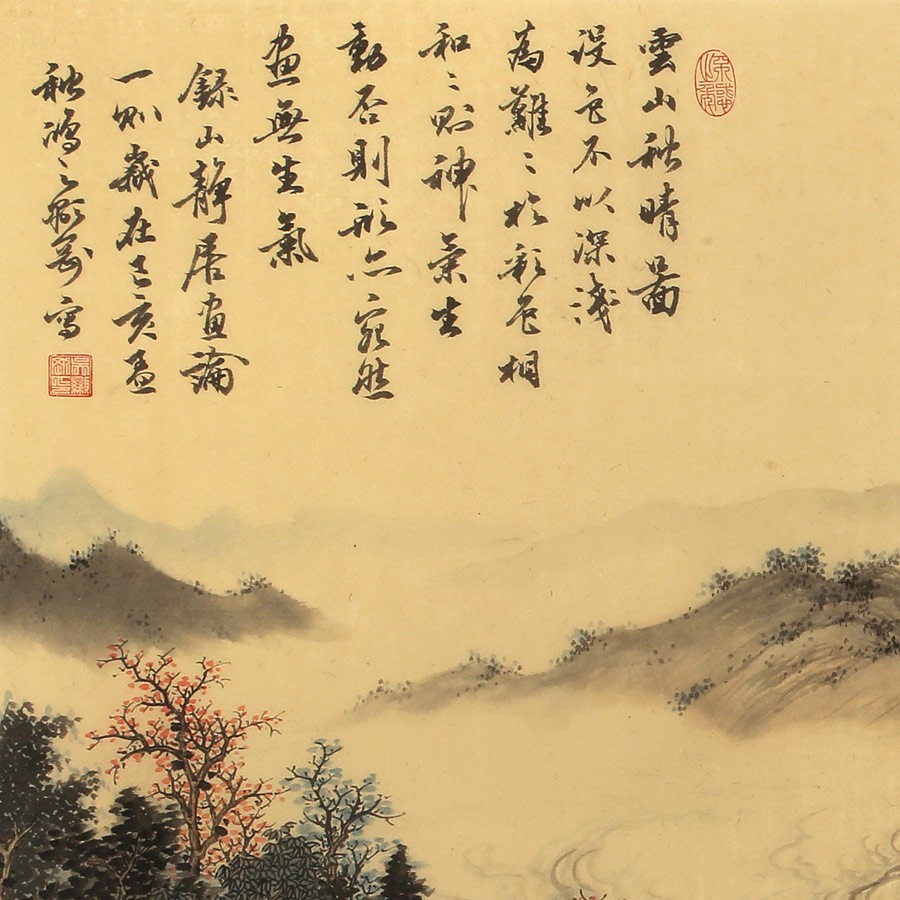 雲山秋晴圖
設色不以深淺
為難〻於彩色相
和〻則神氣生
動否則形亦宛然
畫無生氣
錄山靜居畫論
一則歲在己亥孟
秋鴻之寫